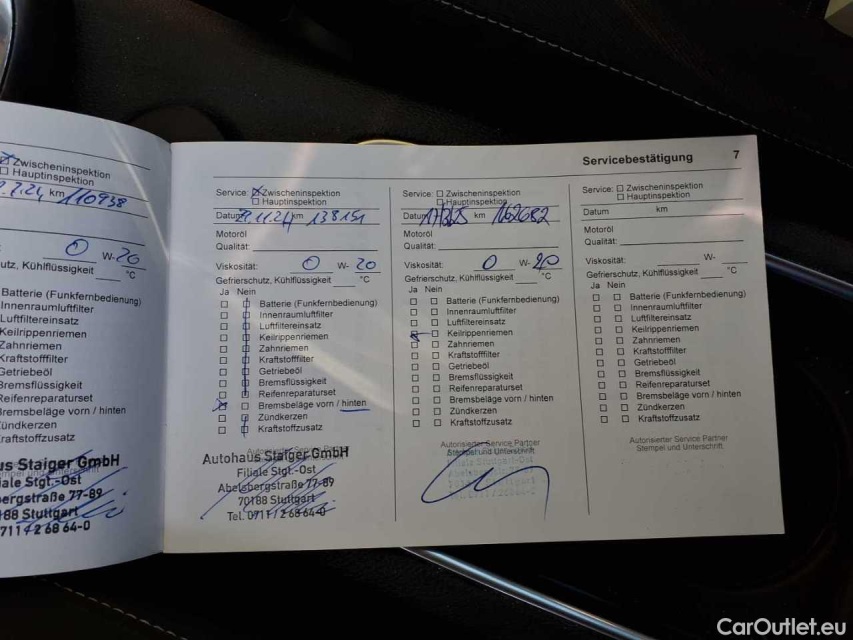 Zwischeninspektion
Hauptinspektion
km 110938
0 W-20
utz, Kühlflüssigkeit °C
Batterie (Funkfernbedienung)
Innenraumluftfilter
Luftfiltereinsatz
Keilrippenriemen
Zahnriemen
Kraftstofffilter
Getriebeöl
Bremsflüssigkeit
Reifenreparaturset
Bremsbeläge vorn / hinten
Zündkerzen
raftstoffzusatz
us Staiger GmbH
iale Stgt.-Ost
ergstraße 77-89
188 Stuttgart
711 / 2 68 64-0
Servicebestätigung 7
Service: Zwischeninspektion
Hauptinspektion
Datum 11.24 km 138151
Motoröl
Qualität:
Viskosität: 0 W-20
Gefrierschutz, Kühlflüssigkeit °C
Ja Nein
Batterie (Funkfernbedienung)
Innenraumluftfilter
Luftfiltereinsatz
Keilrippenriemen
Zahnriemen
Kraftstofffilter
Getriebeöl
Bremsflüssigkeit
Reifenreparaturset
Bremsbeläge vorn / hinten
Zündkerzen
Kraftstoffzusatz
Autohaus Staiger GmbH
Filiale Stgt.-Ost
Abelsbergstraße 77-89
70188 Stuttgart
Tel. 0711 / 2 68 64-0
Service: Zwischeninspektion
Hauptinspektion
Datum km 162682
Motoröl
Qualität:
Viskosität: 0 W-20
Gefrierschutz, Kühlflüssigkeit °C
Ja Nein
Batterie (Funkfernbedienung)
Innenraumluftfilter
Luftfiltereinsatz
Keilrippenriemen
Zahnriemen
Kraftstofffilter
Getriebeöl
Bremsflüssigkeit
Reifenreparaturset
Bremsbeläge vorn / hinten
Zündkerzen
Kraftstoffzusatz
Autorisierter Service Partner
Stempel und Unterschrift
Service: Zwischeninspektion
Hauptinspektion
Datum km
Motoröl
Qualität:
Viskosität: W-
Gefrierschutz, Kühlflüssigkeit °C
Ja Nein
Batterie (Funkfernbedienung)
Innenraumluftfilter
Luftfiltereinsatz
Keilrippenriemen
Zahnriemen
Kraftstofffilter
Getriebeöl
Bremsflüssigkeit
Reifenreparaturset
Bremsbeläge vorn / hinten
Zündkerzen
Kraftstoffzusatz
Autorisierter Service Partner
Stempel und Unterschrift
CarOutlet.eu